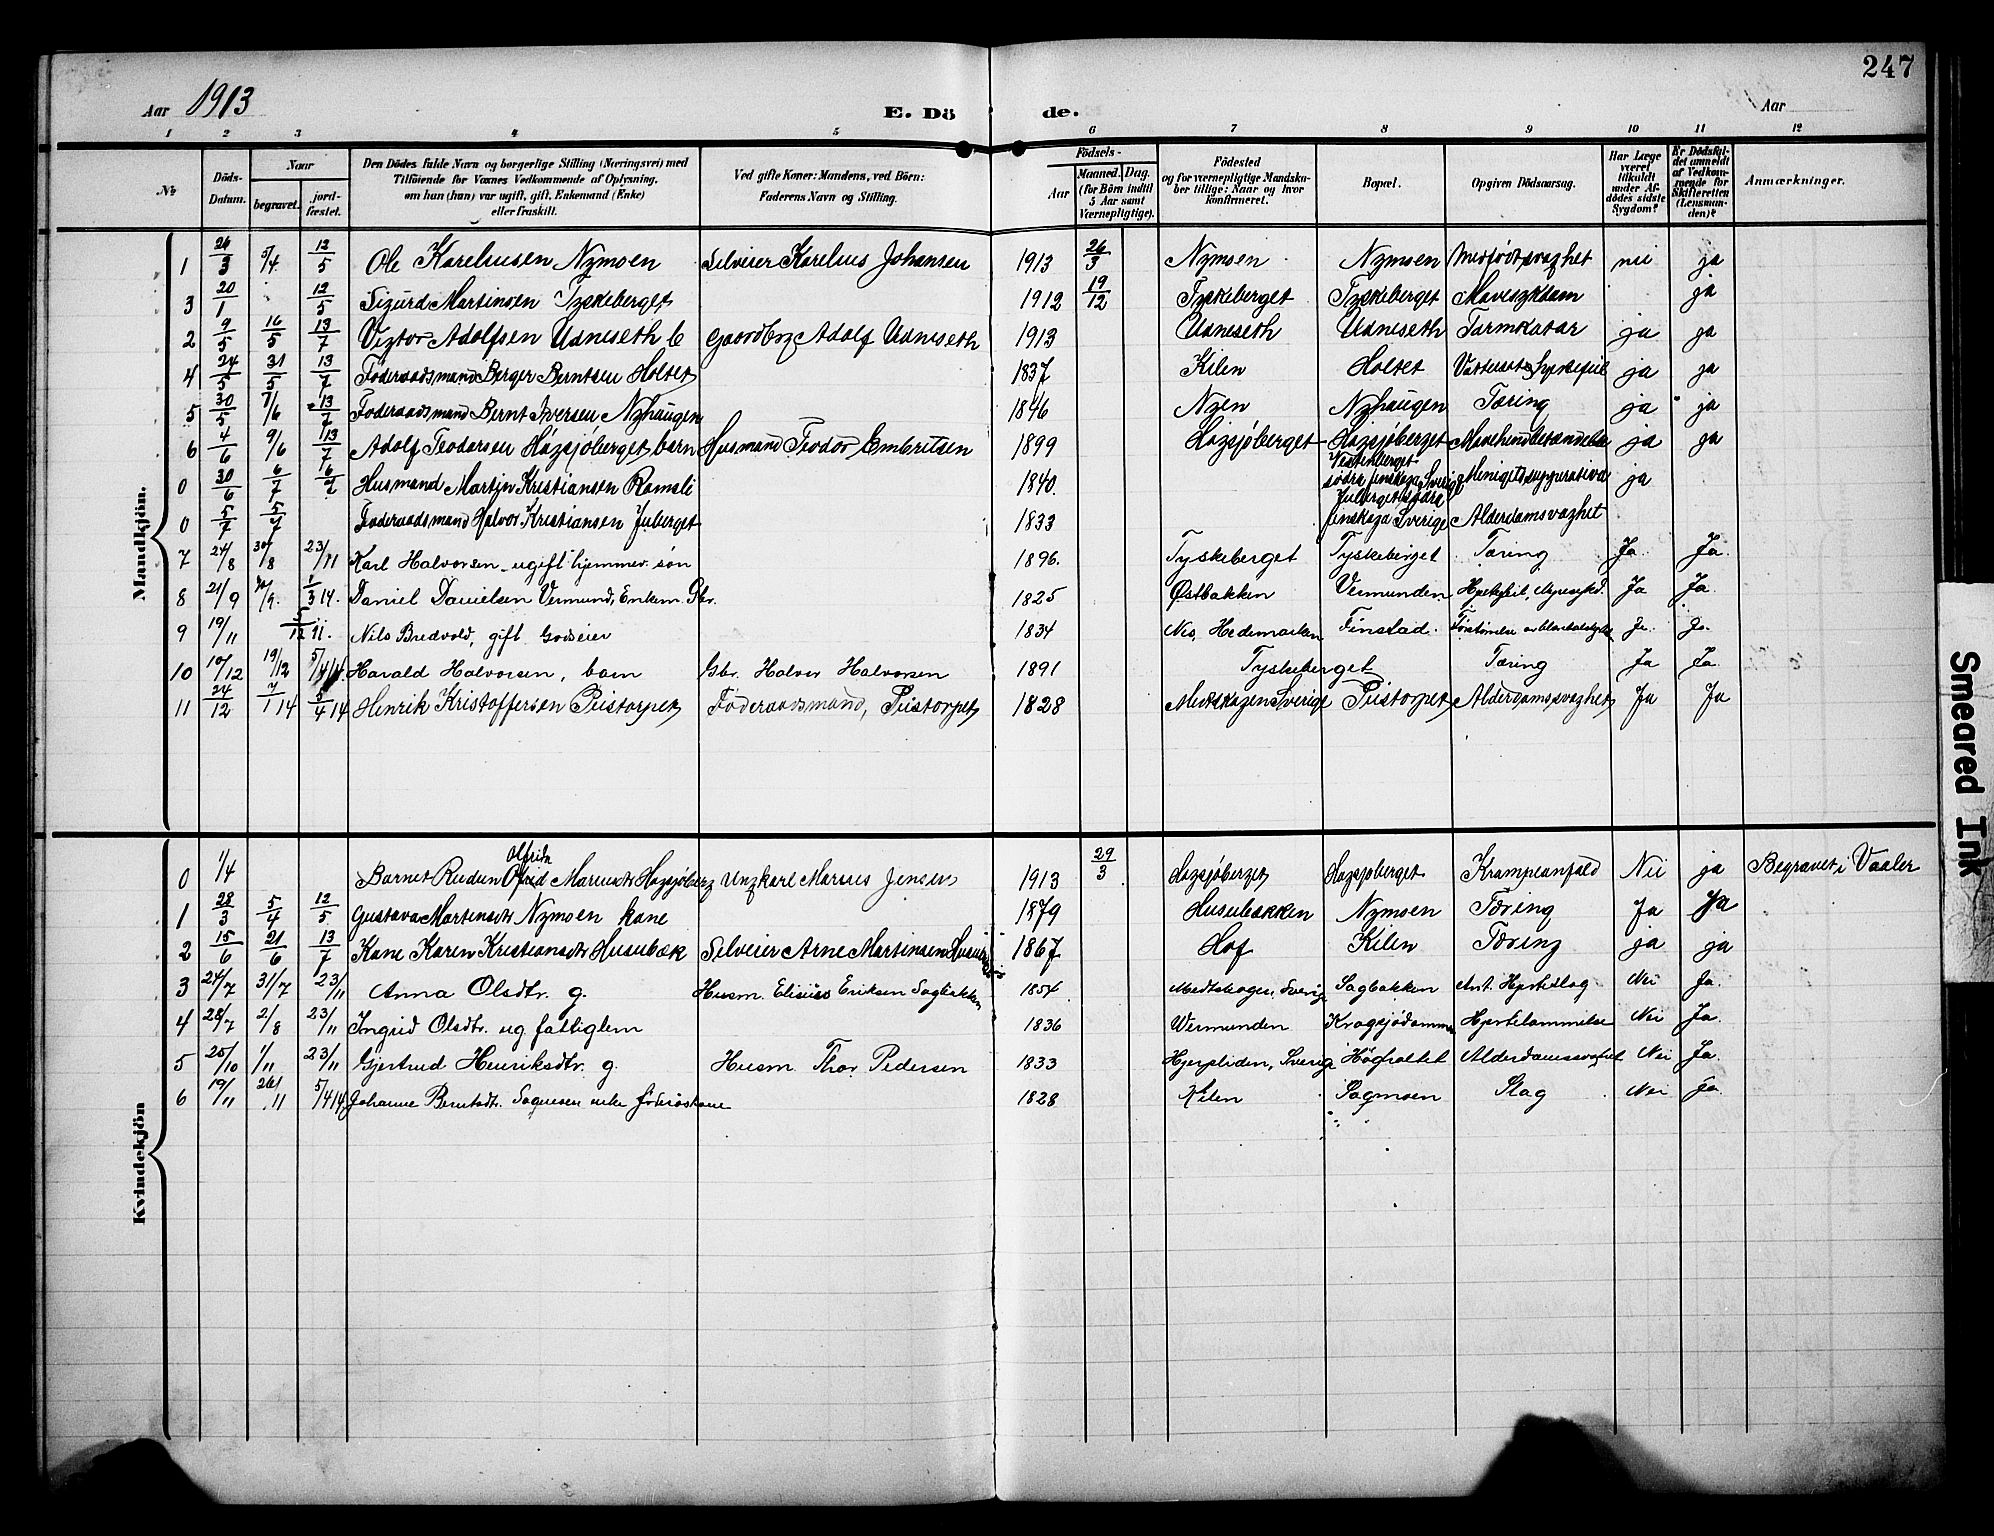 247
Aar 1913
E. Dö de.
Aar
1 2 3 4 5 6 7 8 9 10 11 12
№
Döds-Datum.
Naar
begravet.
jord-fæstet.
Den Dödes fulde Navn og borgerlige Stilling (Næringsvei) med
Tilföiende for Voxnes Vedkommende af Oplysning,
om han (hun) var ugift, gift, Enkemand (Enke)
eller fraskilt.
Ved gifte Koner: Mandens, ved Börn:
Faderens Navn og Stilling.
Födsels-
Aar
Maaned. Dag.
(for Börn indtil
5 Aar samt
Værnepligtige).
Födested
og for værnepligtige Mandska-
ber tillige: Naar og hvor
konfirmeret.
Bopæl.
Opgiven Dödsaarsag.
Har Læge
været
tilkaldt
under Af-
dödes sidste
Sygdom?
Er Dödsfal-
det anmeldt
af Vedkom-
mende for
Skifteretten
(Lensman-
den)?
Anmærkninger.
Mandkjön.
1 26/3 5/4 12/5 Ole Kareliusen Nymoen Selveier Karelius Johansen 1913 26/3 Nymoen Nymoen Medfödt svaghet nei ja
3 20/1 12/5 Sigurd Martinsen Tyskeberget 1912 19/12 Tyskeberget Tyskeberget Mavesykdom ja
2 9/5 16/5 13/7 Vigtor Adolfsen Udneseth b Gaardbrg Adolf Udneseth 1913 Udneseth Udneseth Tarmkatar ja ja
4 24/5 31/5 13/7 Föderaadsmand Berger Berntsen Holtet 1837 Kilen Holtet ja ja
5 30/5 7/6 13/7 Föderaadsmand Bernt Iversen Nyhaugen 1846 Nyen Nyhaugen Tæring ja ja
6 4/6 9/6 13/7 Adolf Teodorsen Högsjöberget, barn Husmand Teodor Embretsen 1899 Högsjöberget Högsjöberget ja ja
0 30/6 6/7 6/7 Husmand Martin Kristiansen Ramsli 1840. södra finskoga Sverige ja
0 5/7 5/7 Föderaadsmand Halvor Kristiansen Juberget 1833 Juberget södra finskoga Sverige Alderdomsvaghet
7 24/8 30/8 23/11 Karl Halvorsen - ugift hjemmev. søn 1896. Tyskeberget Tyskeberget Tæring Ja Ja
8 21/9 /9. 1/3 14. Daniel Danielsen Vermund, Enkem. Gbr. 1825 Østbakken Vermunden Ja Ja
9 19/11 5/12 11. Nils Bredvold, gift Godseier 1834 Nes, Hedemarken Finstad. Ja Ja
10 10/12 19/12 5/4 14 Harald Halvorsen, barn Gbr. Halvor Halvorsen 1891 Tyskeberget Tæring Ja Ja
11 24/12 7/1 14 5/4 14 Henrik Kristoffersen Peistorpet Föderaadsmand, Peistorpet 1828 Medskogen Sverige Peistorpet Alderdomssvaghet Ja Ja
Kvindekjön
0 1/4 Barnet Marius Högsjöberg Ungkarl Marius Jensen 1913 29/3 Högsjöberget Högsjöberget Krampeanfald Nei ja Begravet i Vaaler
1 28/3 5/4 12/5 Gustava Martinsdtr Nymoen kone 1879 Husubakken Nymoen Tæring Ja Ja
2 15/6 21/6 13/7 Kone Karen Kristiansdtr Husubæk Selveier Arne Martinsen 1867 Hof Kilen Tæring ja ja
3 24/7 31/7 23/11 Anna Olsdtr. g. Husm. Eliseus Eriksen Sagbakken 1854 Medtskogen, Sverig Sagbakken Ant. Hjerteslag Nei Ja.
4 28/7 2/8 23/11 Ingrid Olsdtr. ug fattiglem 1836 Vermunden Kragsjödammen Hjertelammelse Nei Ja.
5 25/10 1/11 23/11 Gjertrud Henriksdtr. g. Husm. Thor Pedersen 1833 Hjerpliden, Sverig Högholtet Alderdomssvaghet Nei Ja.
6 19/11 26/11 5/4 14 Johanne Berntsdtr. Sagmoen enke föderaadskone 1828 Kilen Sagmoen Slag Nei Ja
Smeared Ink